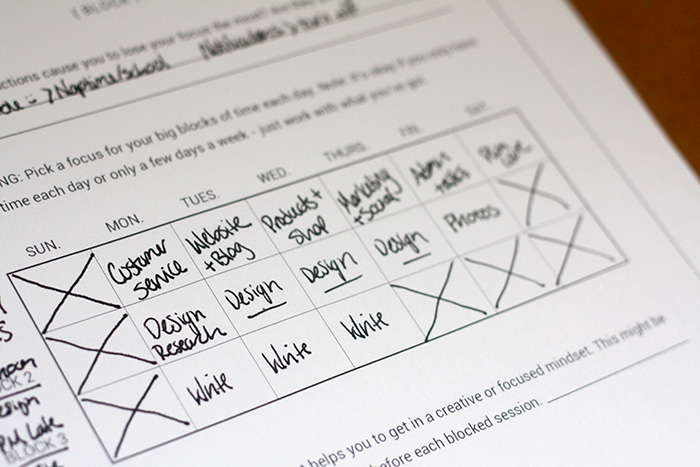 ( BLOCK
ctions cause you to lose your focus the most?
Naptime/school Notifications > turn off
NG: Pick a focus for your big blocks of time each day. Note: It's okay if you only have
time each day or only a few days a week - just work with what you've got.
SUN. MON. TUES. WED. THURS. FRI. SAT.
Customer Service
Website + Blog
Products + Shop
Marketing + Social
Admin + tasks
Plan
Design Research
Design
Design
Design
Photos
Write
Write
Write
BLOCK 2
BLOCK 3
t helps you to get in a creative or focused mindset. This might be
before each blocked session.